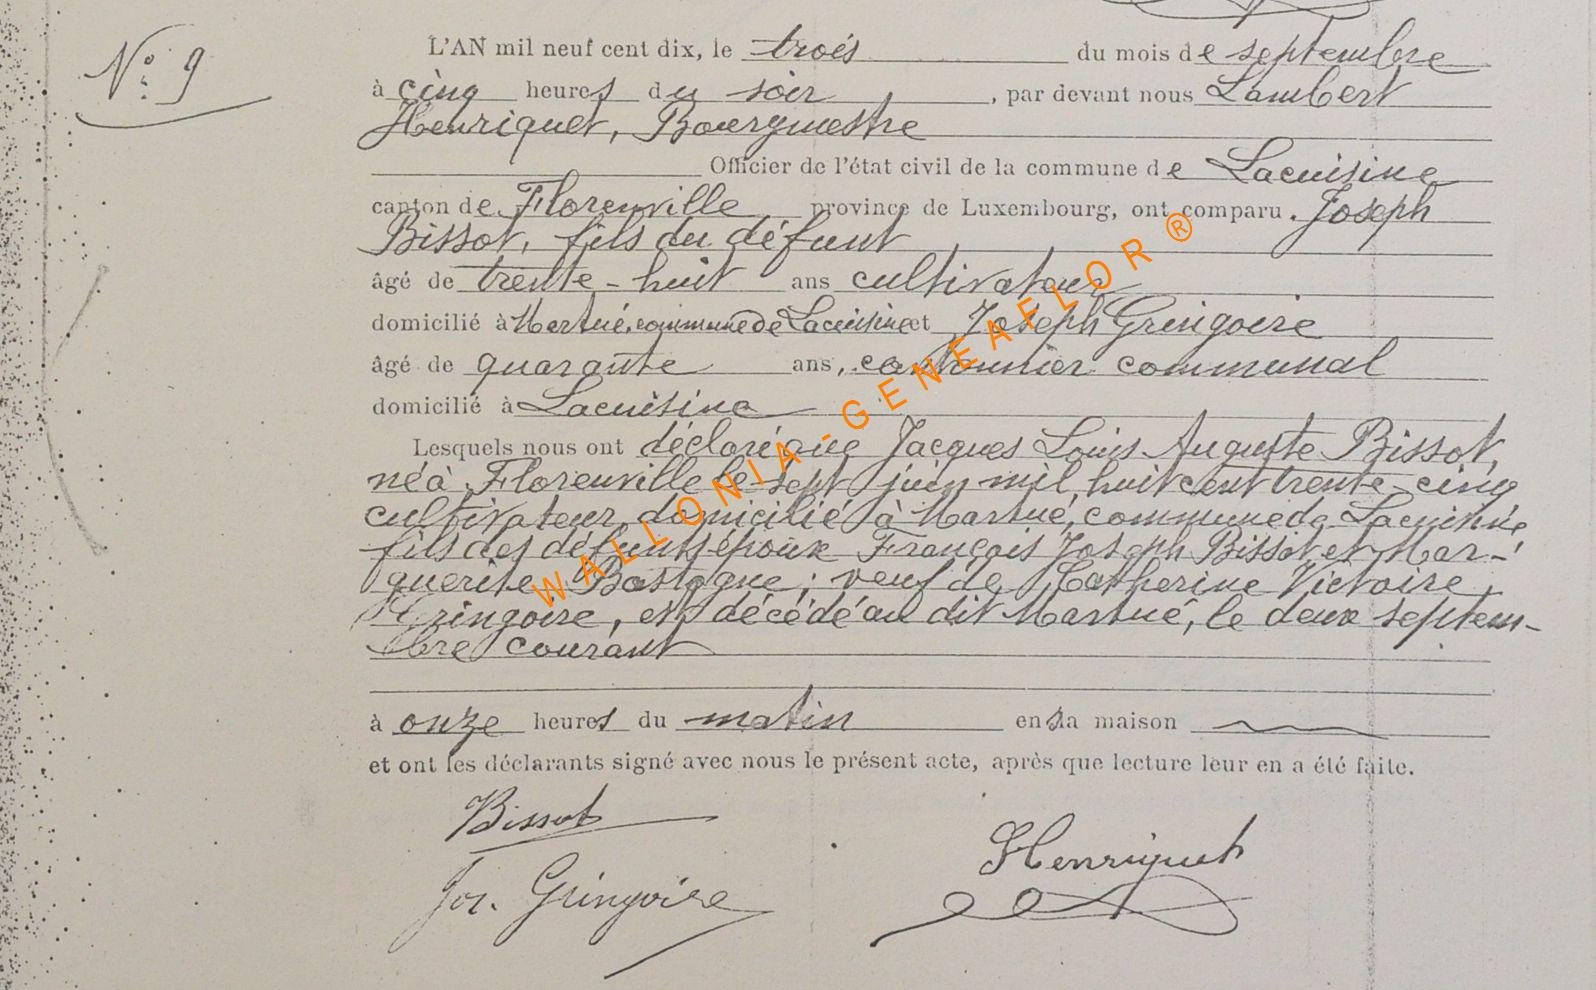 N° 9
L'AN mil neuf cent dix, le trois du mois de septembre
à cinq heures du soir, par devant nous Lambert
Henriquet, Bourgmestre
Officier de l'état civil de la commune de Lacuisine
canton de Florenville province de Luxembourg, ont comparu Joseph
Bissot, fils du défunt
âgé de trente-huit ans cultivateur
domicilié à Martué, commune de Lacuisine et Joseph Gringoire
âgé de quarante ans, cantonnier communal
domicilié à Lacuisine
Lesquels nous ont déclaré que Jacques Louis Auguste Bissot,
né à Florenville le sept juin mil huit cent trente-cinq
cultivateur domicilié à Martué, commune de Lacuisine,
fils des défunts époux François Joseph Bissot et Mar-
guerite Bastogne; veuf de Catherine Victoire
Gringoire, est décédé au dit Martué, le deux septem-
bre courant
à onze heures du matin en sa maison
et ont les déclarants signé avec nous le présent acte, après que lecture leur en a été faite.
Bissot
Jos. Gringoire
Henriquet
WALLONIA-GENEAFLOR ®